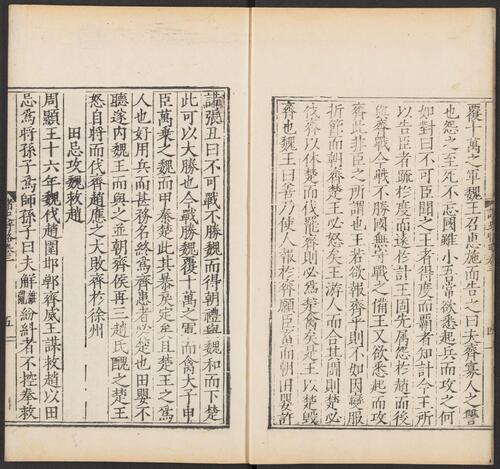 覆十萬之軍魏王召惠施而告之曰夫齊寡人之讐
也怨之至死不忘國雖小吾常欲悉起兵而攻之何
如對曰不可臣聞之王者得度而覇者知計今王所
以告臣者疏於度而遠於計王固先属怨於趙而後
與齊戰今戰不勝國無守戰之備王又欲悉起而攻
齊此非臣之所謂也王若欲報齊乎則不如因變服
折節而朝齊楚王必怒矣王游人而合其鬬則楚必
伐齊以休楚而伐罷齊則必為楚禽矣是王以楚毁
齊也魏王曰善乃使人報於齊願臣畜而朝田嬰許
諾張丑曰不可戰不勝魏而得朝禮與魏和而下楚
此可以大勝也今戰勝魏覆十萬之軍而禽太子申
臣萬乗之魏而甲秦楚此其暴戾定矣且楚王之為
人也好用兵而甚務名終為齊患者必楚也田嬰不
聽遂内魏王而與之並朝齊侯再三趙氏醜之楚王
怒自將而伐齊趙應之大敗齊於徐州
田忌攻魏救趙
周顯王十六年魏伐趙圍邯鄲齊威王謀救趙以田
忌為將孫子為師孫子曰夫解雜亂紛糾者不控拳救
五